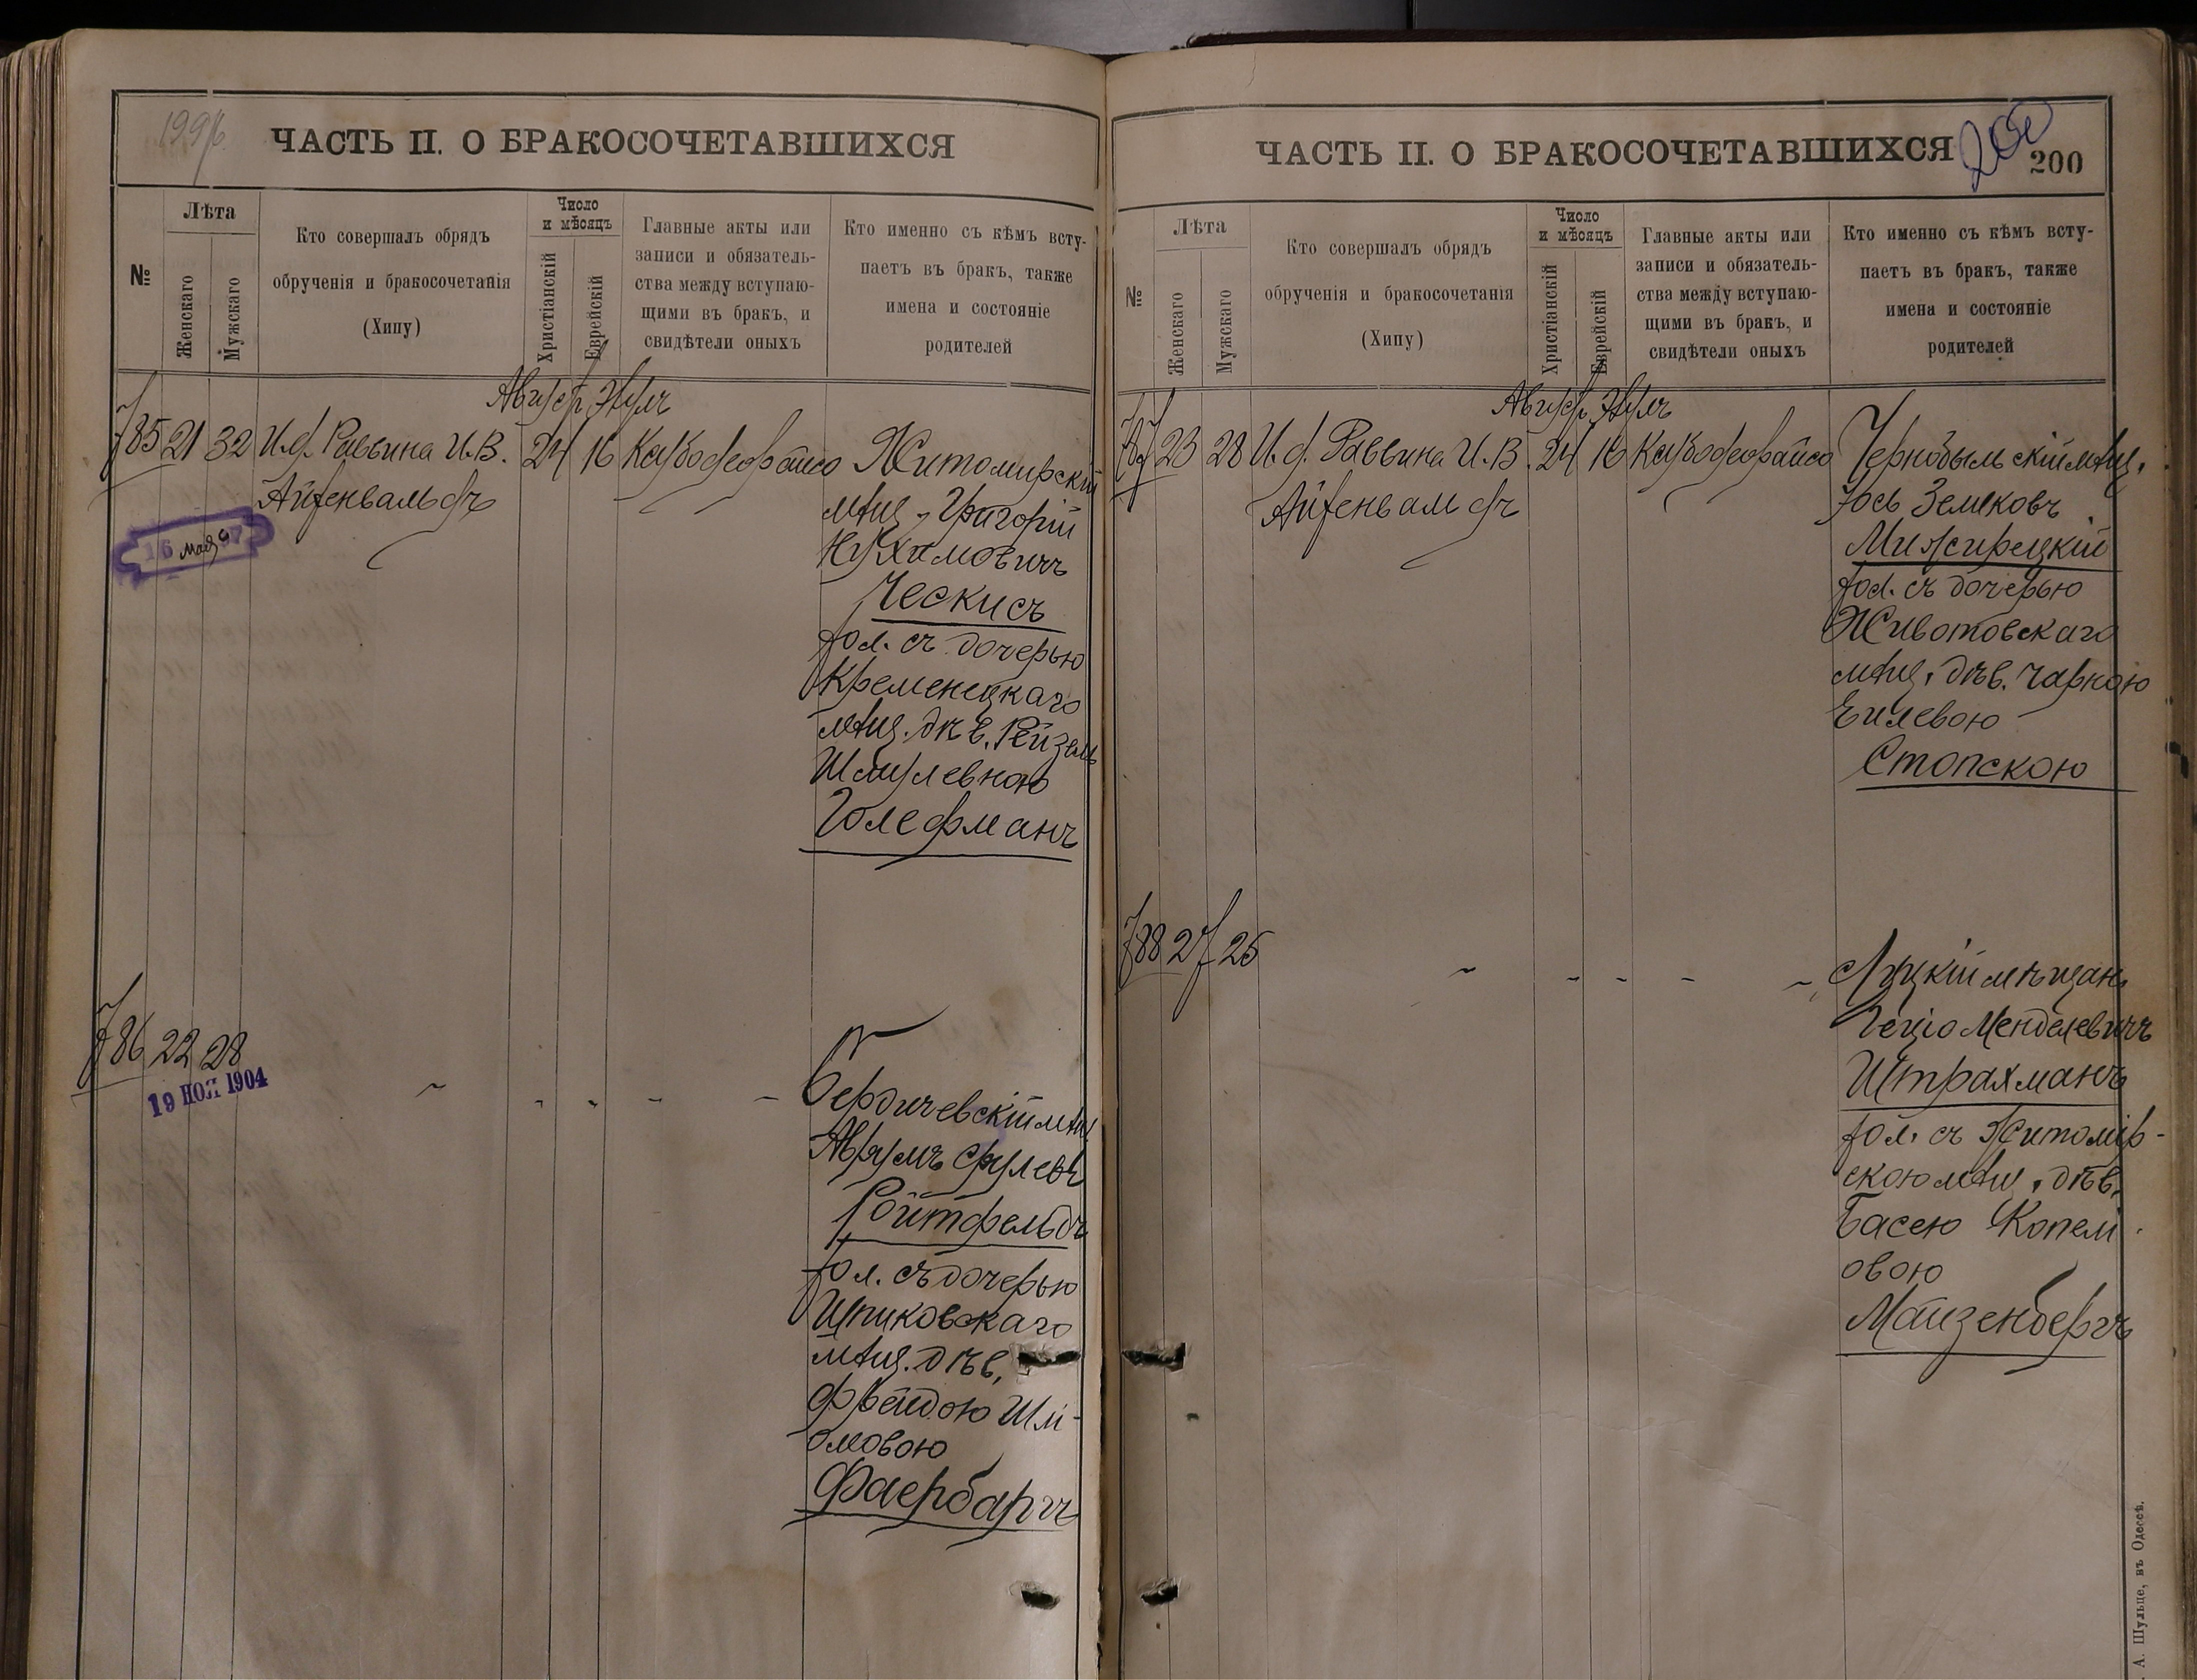 199 об.
ЧАСТЬ II. О БРАКОСОЧЕТАВШИХСЯ
№
Лѣта
Женскаго
Мужскаго
Кто совершалъ обрядъ
обрученія и бракосочетанія
(Хипу)
Число
и мѣсяцъ
Христіанскій
Еврейскій
Главные акты или
записи и обязатель-
ства между вступаю-
щими въ бракъ, и
свидѣтели оныхъ
Кто именно съ кѣмъ всту-
паетъ въ бракъ, также
имена и состояніе
родителей
Август. Элулъ
785 21 32 И. д. Раввина И. В. 24 16
Айзенвальдъ
16 мая 9
Житомирскій
мѣщ. Григорій
Нухимовичъ
Ческисъ
хол. съ дочерью
Кременецкаго
мѣщ. дѣв. Рейзель
Шмулевною
786 22 28
19 НОЯ 1904
Бердичевскій мѣщ
Аврумъ Срулевъ
Ройтфельдъ
хол. съ дочерью
Шпиковскаго
мѣщ. дѣв.
Фрейдою Шлі-
омовою
Фаербаргъ
ЧАСТЬ II. О БРАКОСОЧЕТАВШИХСЯ
200
200
№
Лѣта
Женскаго
Мужскаго
Кто совершалъ обрядъ
обрученія и бракосочетанія
(Хипу)
Число
и мѣсяцъ
Христіанскій
Еврейскій
Главные акты или
записи и обязатель-
ства между вступаю-
щими въ бракъ, и
свидѣтели оныхъ
Кто именно съ кѣмъ всту-
паетъ въ бракъ, также
имена и состояніе
родителей
Август. Элулъ
787 23 28 И. д. Раввина И. В. 24 16
Айзенвальдъ
Чернобыльскій мѣщ.
Іось Зелковъ
Межирецкій
хол. съ дочерью
Животовскаго
мѣщ. дѣв. Чарною
Стопскою
788 27 25
Луцкій мѣщан.
Менделевичъ
Штрахманъ
хол. съ Житомір-
скою мѣщ. дѣв.
Басею Копел-
овою
Майзенбергъ
А. Шульце, въ Одессѣ.